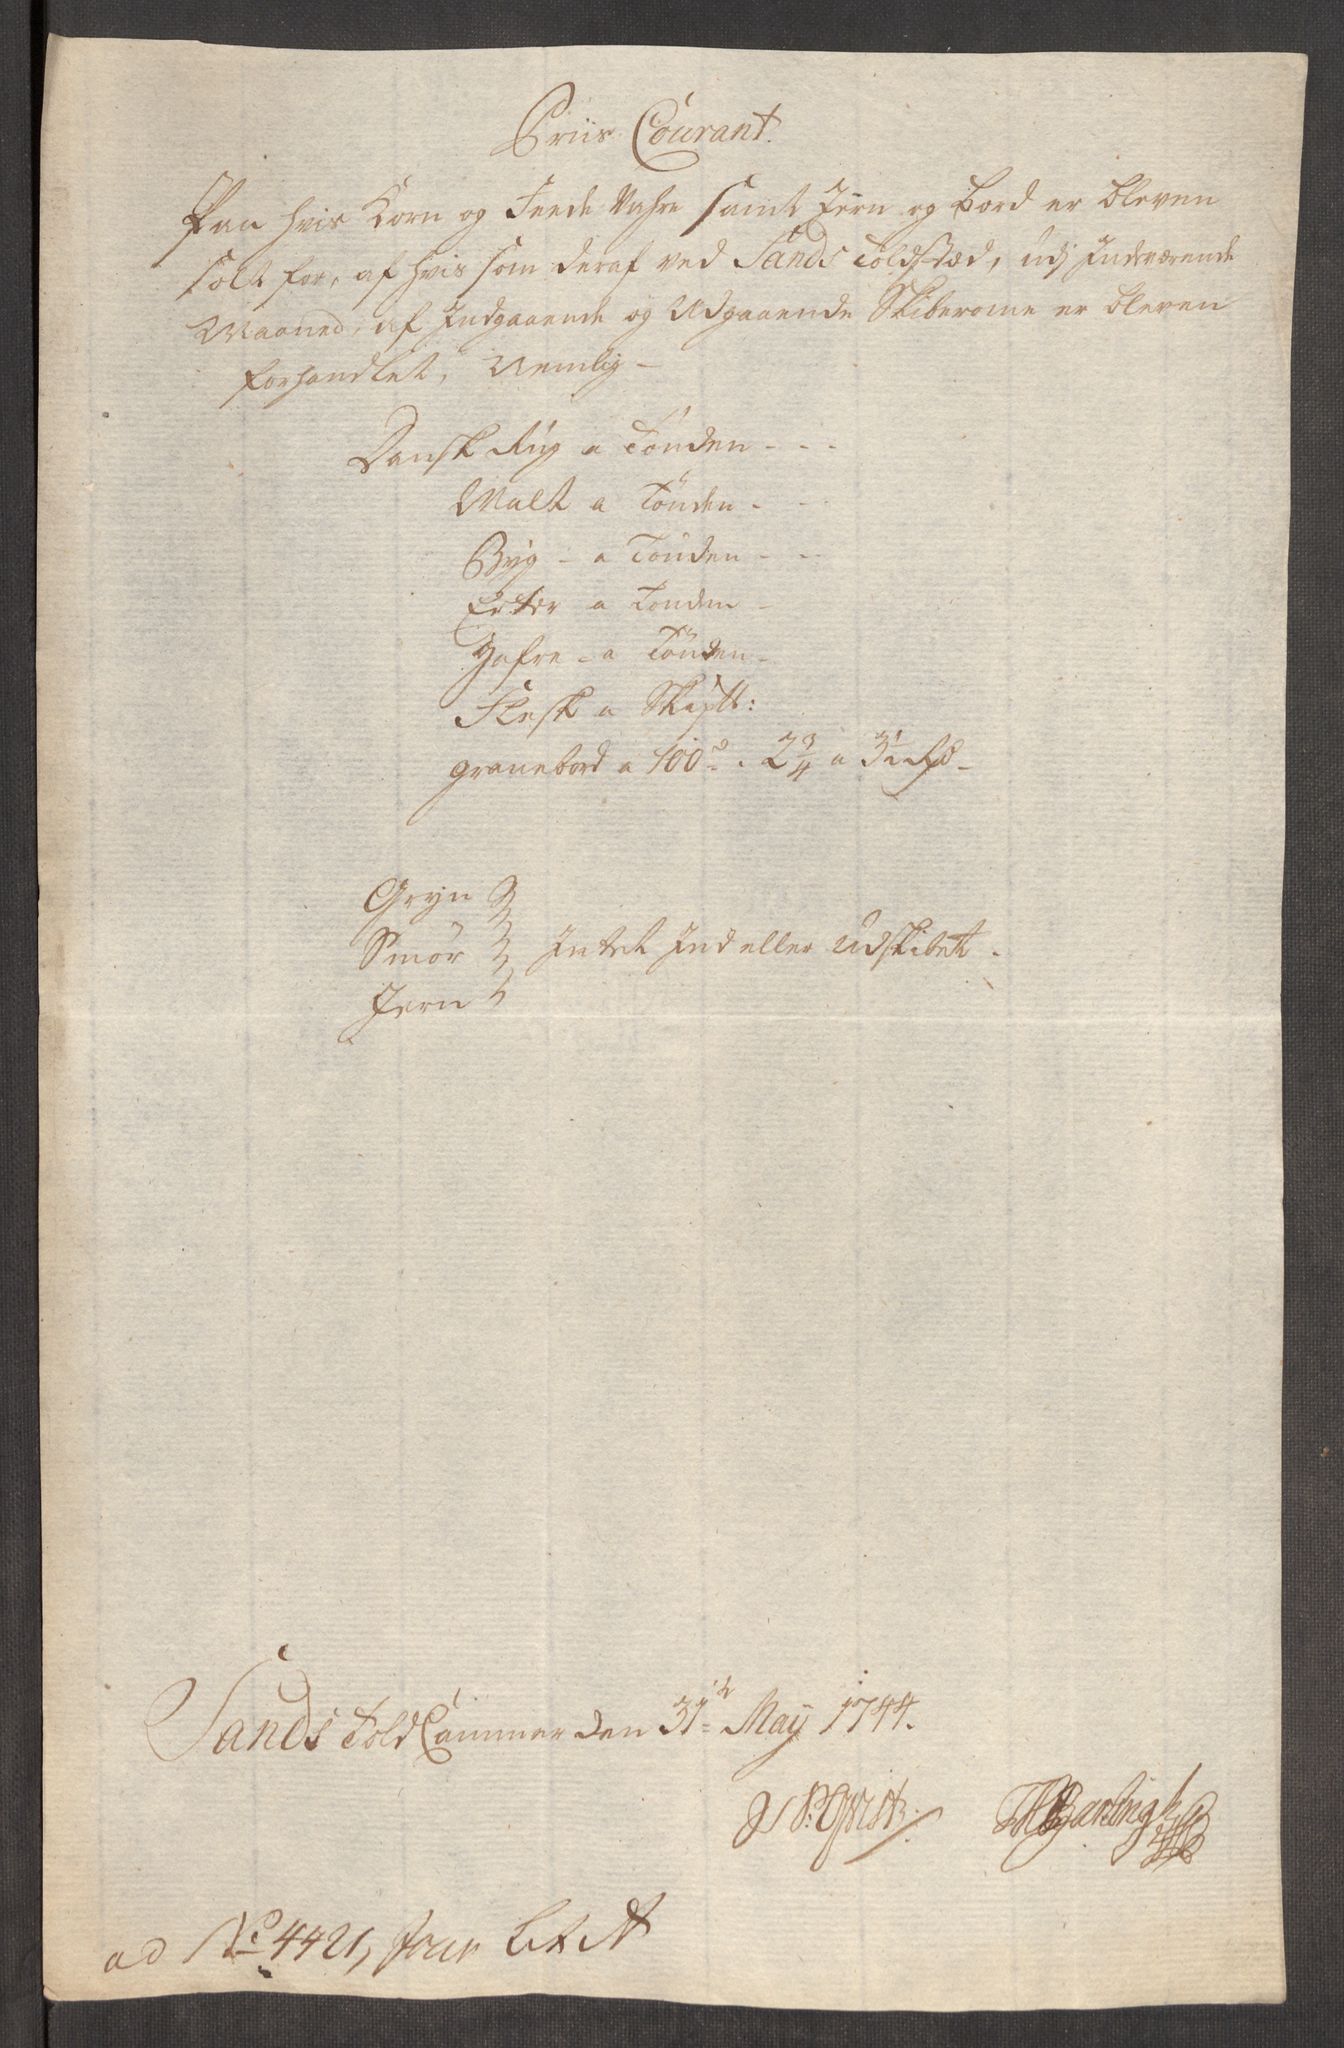 Priis Courant.
Paa hvis Korn og Feede Vahre samt Jern og Bord er bleven
solt for, af hvis som deraf ved Sands Toldstæd, udj Indeværende
Maaned, af Indgaaende og Udgaaende Skiberome er bleven
forhandlet, Nemlig –
Dansk Rug a Tönden - - -
Malt a Tönden - -
Byg - a Tönden - - -
Erter a Tonden -
Hafre - a Tönden -
Flesk a Skipll:
granebord a 100de . 2 3/4 a 3 1/2 Rd -
Gryn
Smör Intet Ind eller Udskibet .
Jern
Sands Told Cammer den 31te Maij 1744.
ad No 4421, Jour Lit A